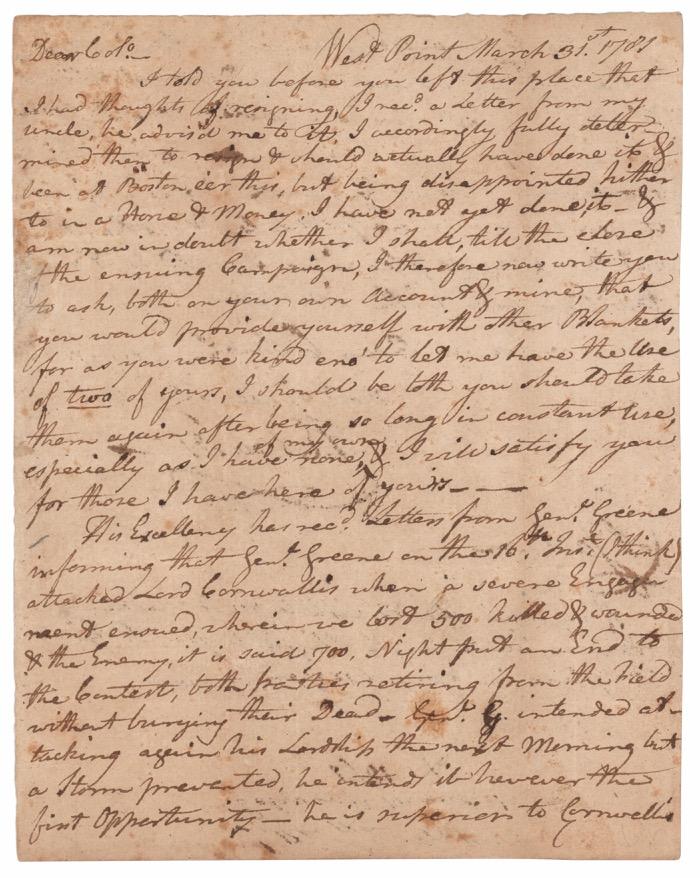 Dear Colo. West Point March 31.st 1781
I told you before you left this place that
I had thoughts of resigning, I recd. a Letter from my
uncle, he advis'd me to it, I accordingly fully deter-
mined then to resign & should actually have done it &
been at Boston eer this, but being disappointed hither
to in a Horse & Money, I have not yet done it - &
am now in doubt whether I shall, till the close
of the ensuing Campaign, I therefore now write you
to ask, both on your own Account & mine, that
you would provide yourself with other Blankets,
for as you were kind eno' to let me have the Use
of two of yours, I should be loth you should take
them again after being so long in constant Use,
especially as I have none of my own, & I will satisfy you
for those I have here of yours - -
His Excellency has recd. Letters from Genl. Greene
informing that Genl. Greene on the 16th. Inst. (I think)
attacked Lord Cornwallis when a severe Engage
ment ensued, wherein we lost 500 killed & wounded
& the Enemy, it is said 700, Night put an End to
the Contest, both parties retiring from the Field
without burying their Dead - Genl. G. intended at-
tacking again his Lordship the next Morning but
a Storm prevented, he intends it however the
first Opportunity - he is superior to Cornwallis